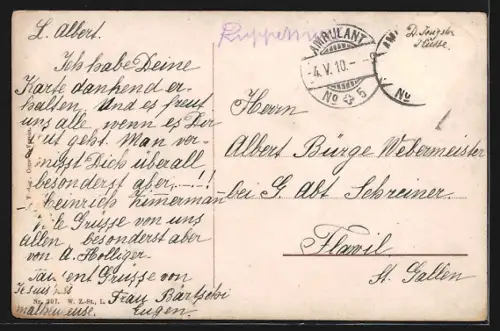 L. Albert.
Ich habe Deine
Karte dankend er-
halten, Und es freut
uns alle, wenn es Dir
gut geht. Man ver-
misst Dich überall
besonderst aber,—!!
Heinrich Zimmerman
Viele Grüsse von uns
allen, besonderst aber
von A. Holliger.
Tausent Grüsse von
Frau Bärtschi
Eugen.
Nr. 201. W. Z.-St., L.
AMBULANT
-4.V.10.-
No 5
AM
No
Grüsse.
Herrn
Albert Bürge Webermeister
bei G. Abt Schreiner.
Flawil
St. Gallen